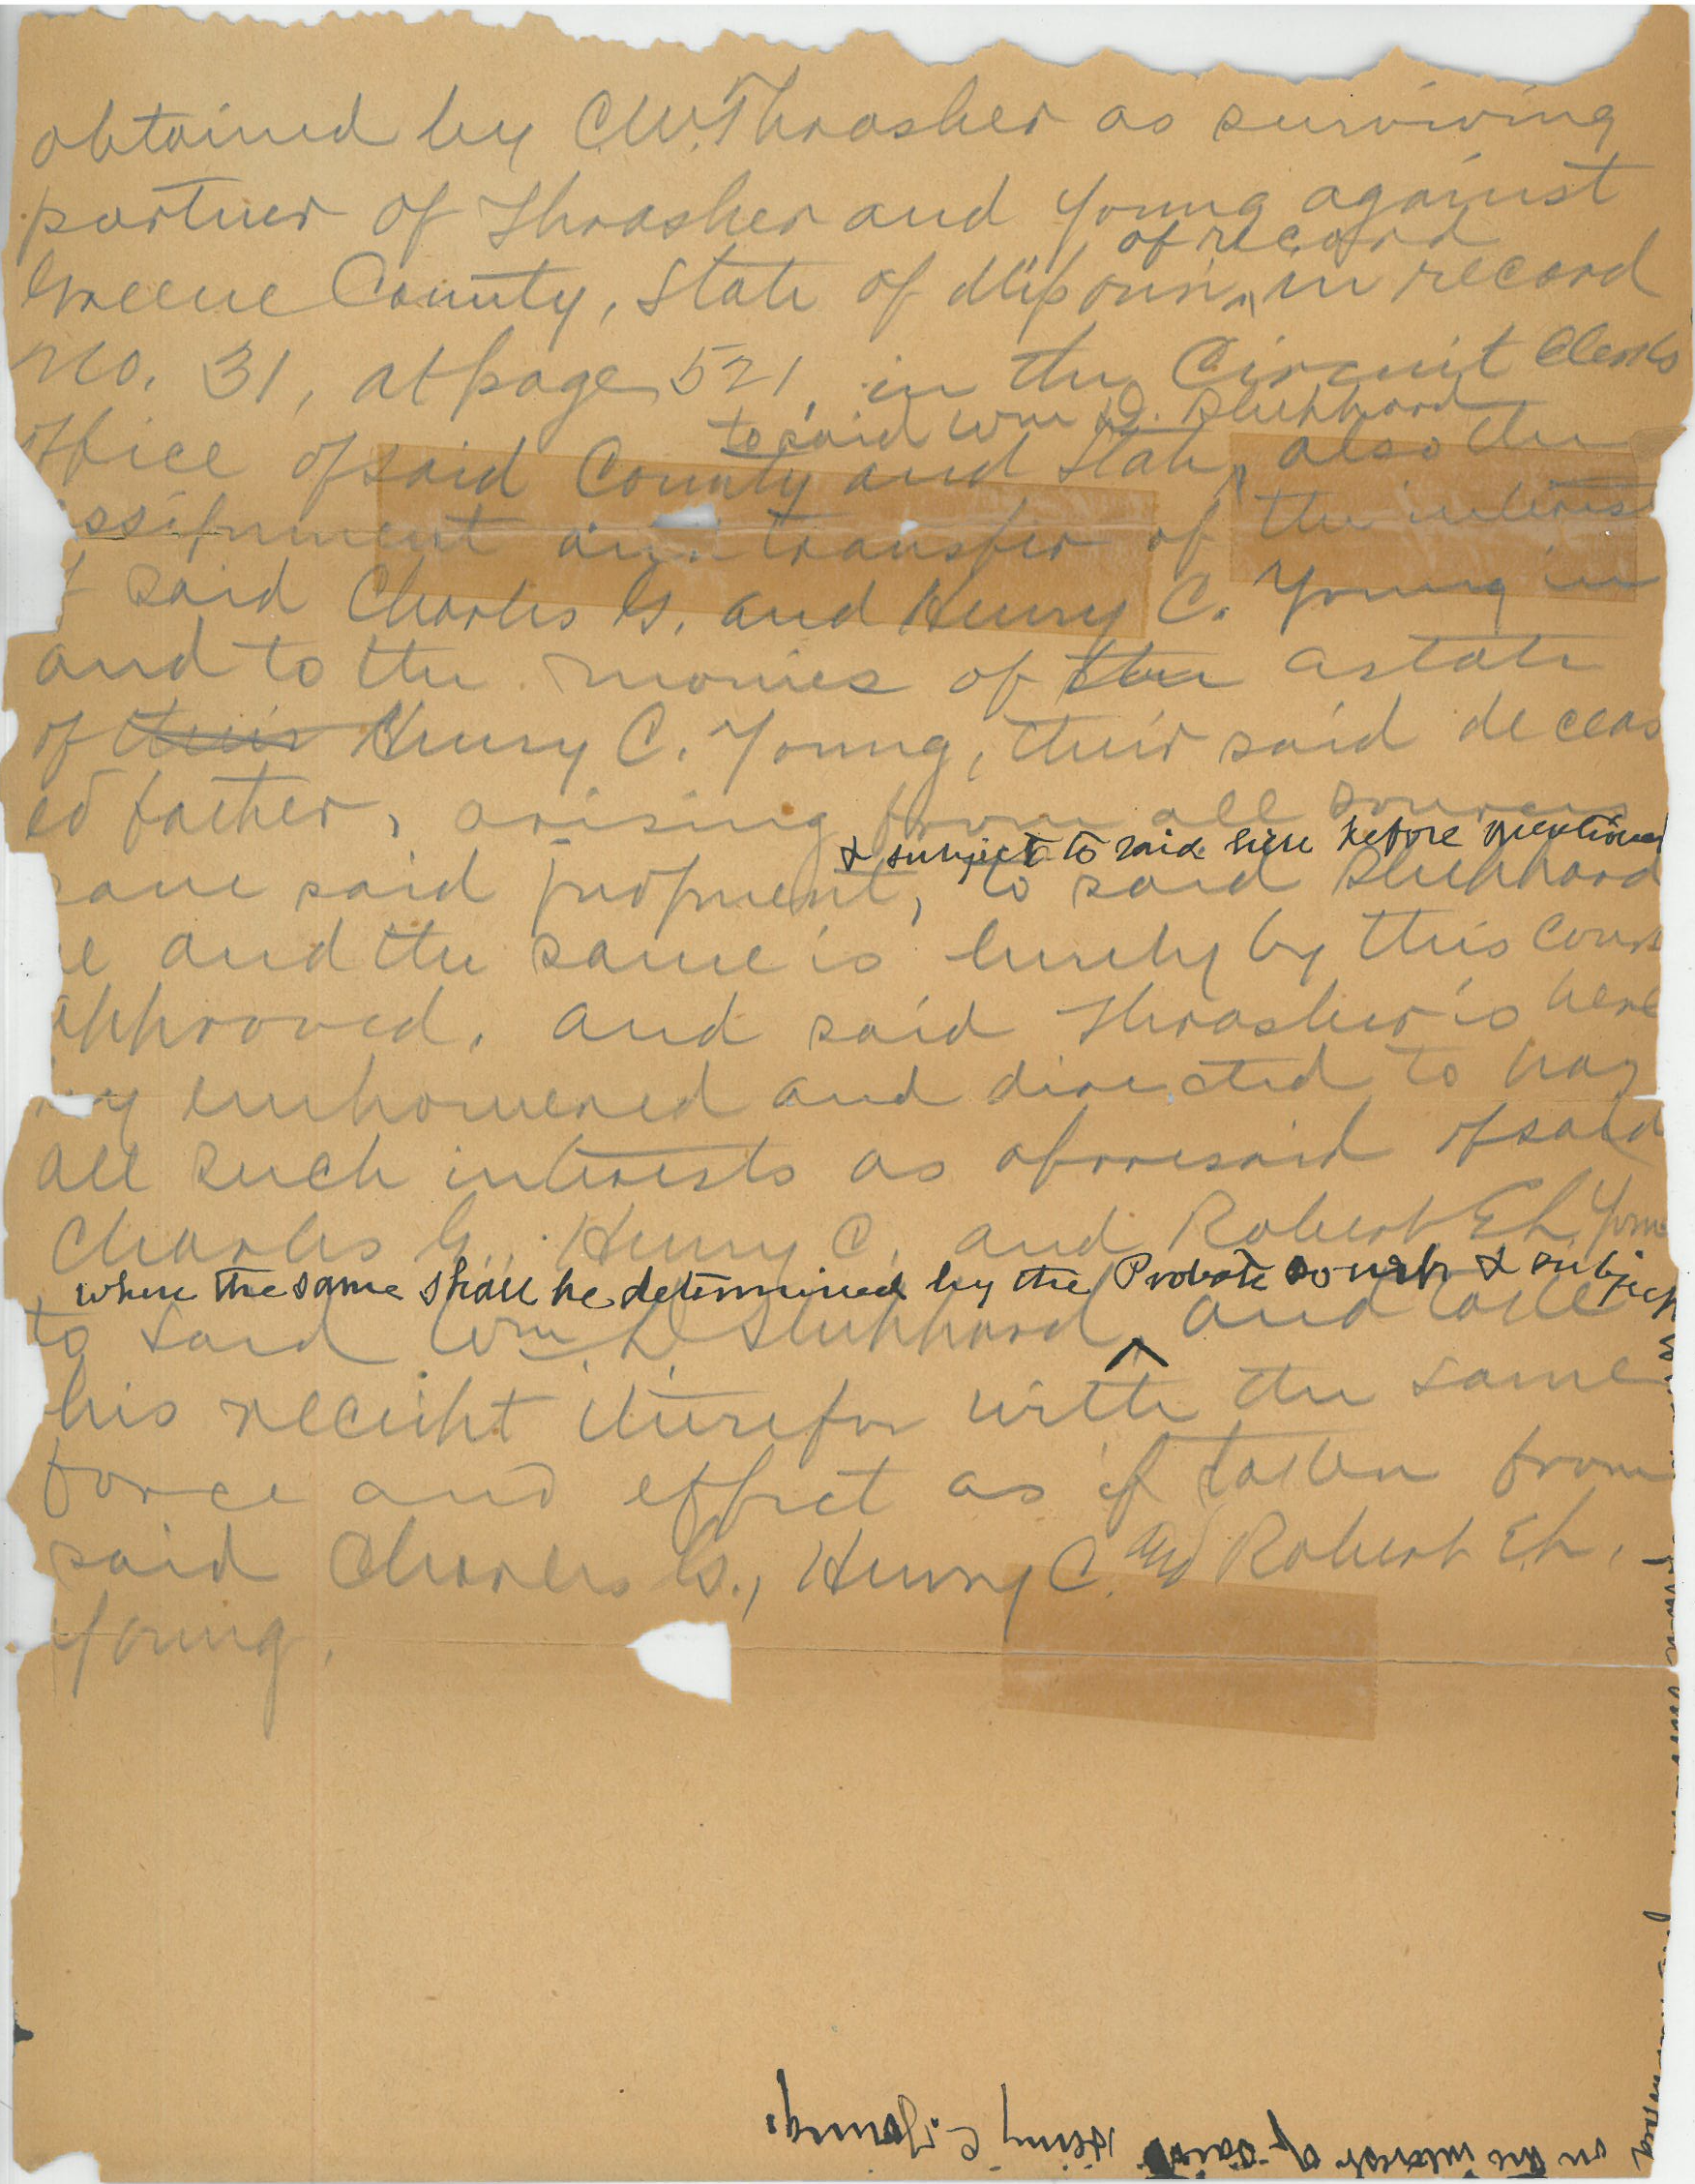 obtained by C.W. Thrasher as surviving
partner of Thrasher and Young against
of record
Greene County, State of Missouri, in record
No. 31, at page 521, in the Circuit Clerks
to said Wm D. Shepphard
office of said County and State, also the
ssignment and transfer of the interest
f said Charles G. and Henry C. Young in
and to the monies of the estate
of their Henry C. Young, their said deceas
ed father, arising from all sources
& subject to said lien before mentioned
save said judgment, to said Shepphard
e and the same is hereby by this Court
approved. and said Thrasher is here
by empowered and directed to pay
all such interests as aforesaid of said
Charles G., Henry C. and Robert Eh. Youn
when the same shall be determined by the Probate Court & subject
to said Wm D Shepphard, and take
his receipt therefor with the same
force and effect as if taken from
said Charles G., Henry C. and Robert Eh.
Young.
on the interest of said Henry C. Young.